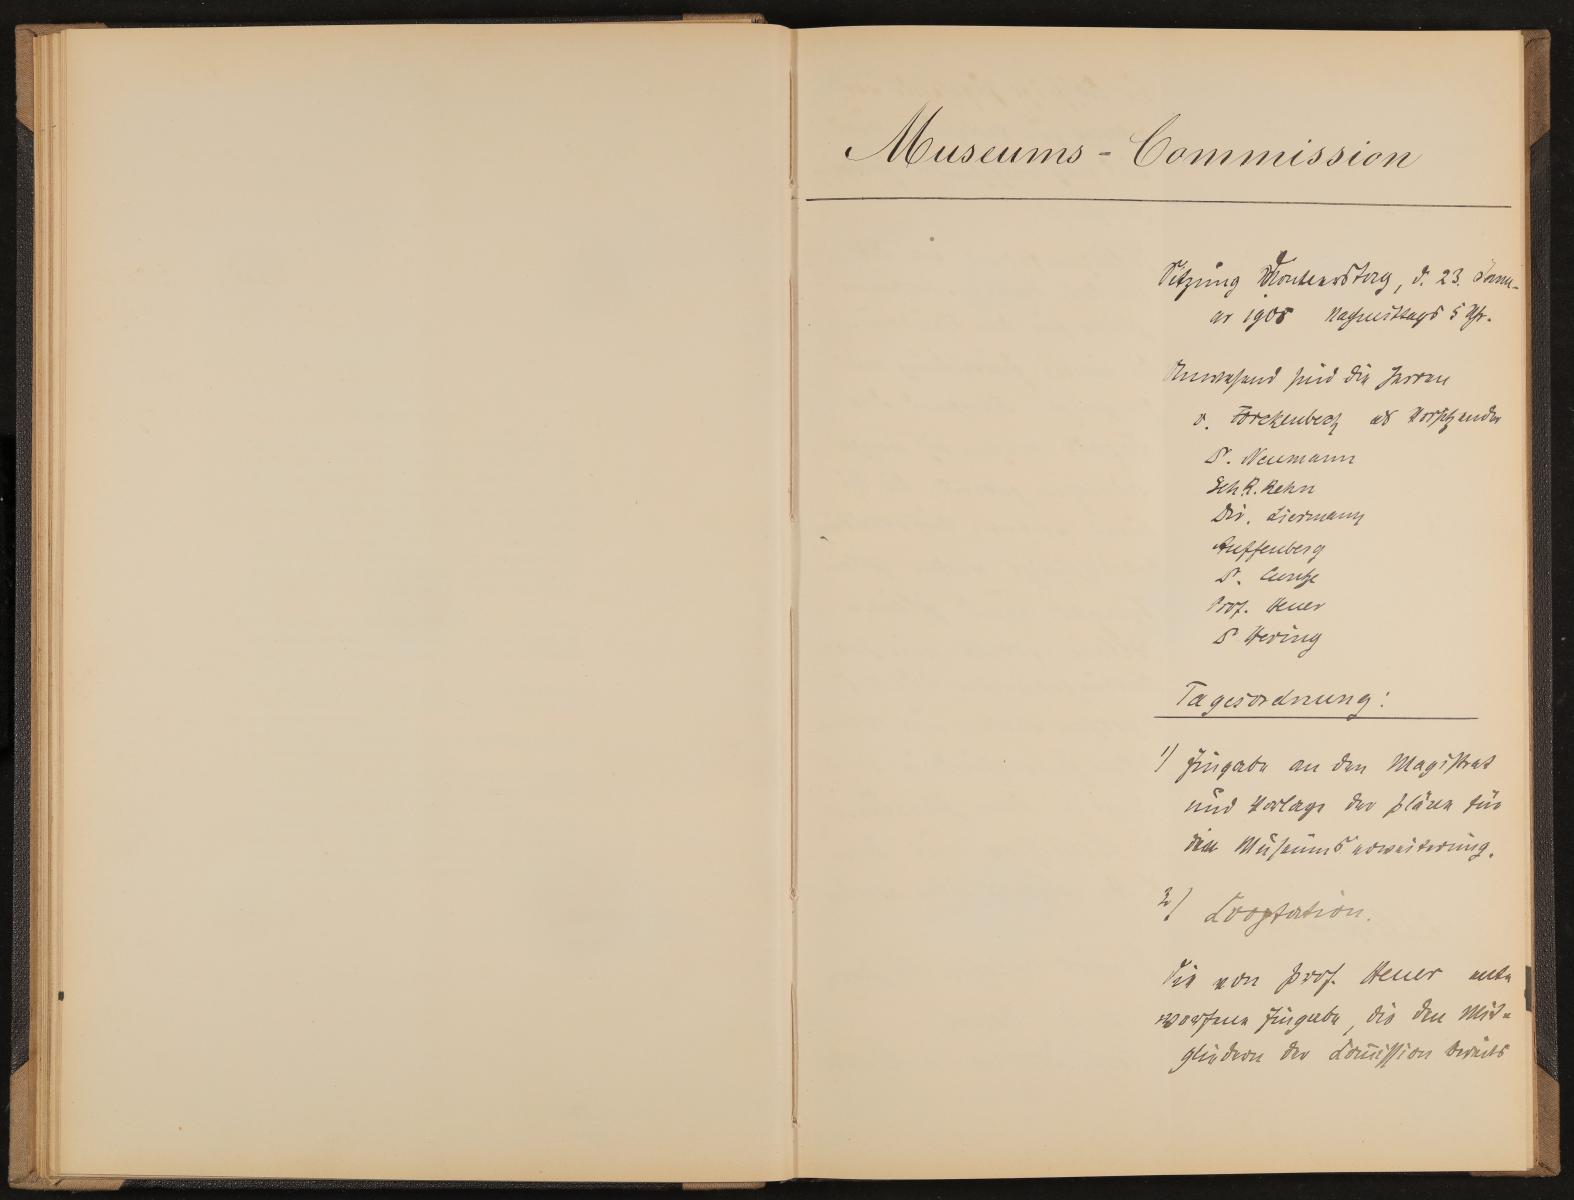 Museums-Commission
Sitzung Donnerstag, d. 23. Janu-
ar 1908 Nachmittags 5 Uhr.
Anwesend sind die Herren
v. Forckenbeck als Vorsitzender
Dr. Neumann
Sch.R. Kehn
Dir. Liermann
Auffenberg
Dr. Cuntze
Prof. Heuer
Dr Hering
Tagesordnung:
1) Eingabe an den Magistrat
und Vorlage der Pläne für
die Museumserweiterung.
2) Cooptation.
Die von Prof. Heuer entw
worfene Eingabe, die den Mit-
gliedern der Comission bereits